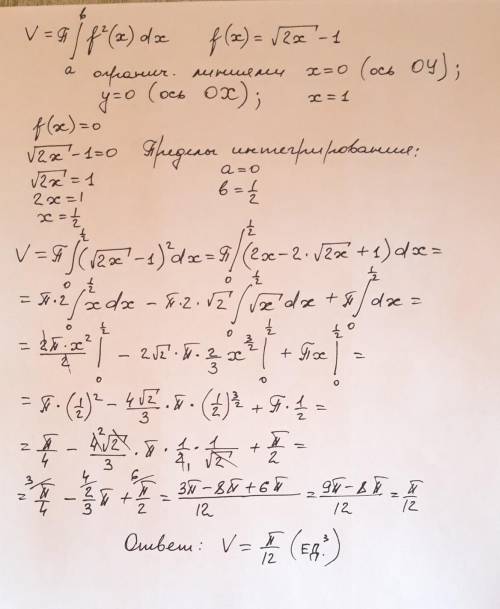 V = π ∫ₐᵇ f²(x) dx    f(x) = √2x - 1
огранич. линиями x=0 (ось OY);
y=0 (ось OX);    x=1
f(x)=0
√2x - 1=0    Пределы интегрирования:
√2x = 1    a=0
2x=1    b=1/2
x=1/2
V = π ∫₀^(1/2) (√2x - 1)² dx = π ∫₀^(1/2) (2x - 2·√2x + 1) dx =
= π·2 ∫₀^(1/2) x dx - π·2·√2 ∫₀^(1/2) √x dx + π ∫₀^(1/2) dx =
= 2π·x²/2 |₀^(1/2) - 2√2·π·2/3 x^(3/2) |₀^(1/2) + πx |₀^(1/2) =
= π·(1/2)² - 4√2/3·π·(1/2)^(3/2) + π·1/2 =
= π/4 - 4²√2/3·π·1/2₁·1/√2 + π/2 =
= ³π/4 - ⁴2/3 π + ⁶π/2 = 3π - 8π + 6π/12 = 9π - 8π/12 = π/12
Ответ: V = π/12 (ЕД.³)